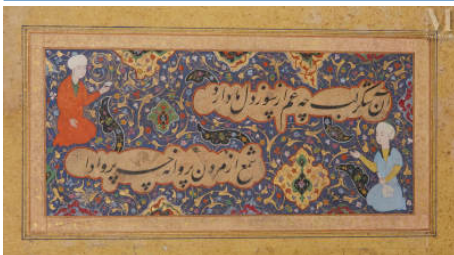 آن شکر لب چه غم از سوز دل ما دارد
شمع از مردن پروانه چه پروا دارد
M